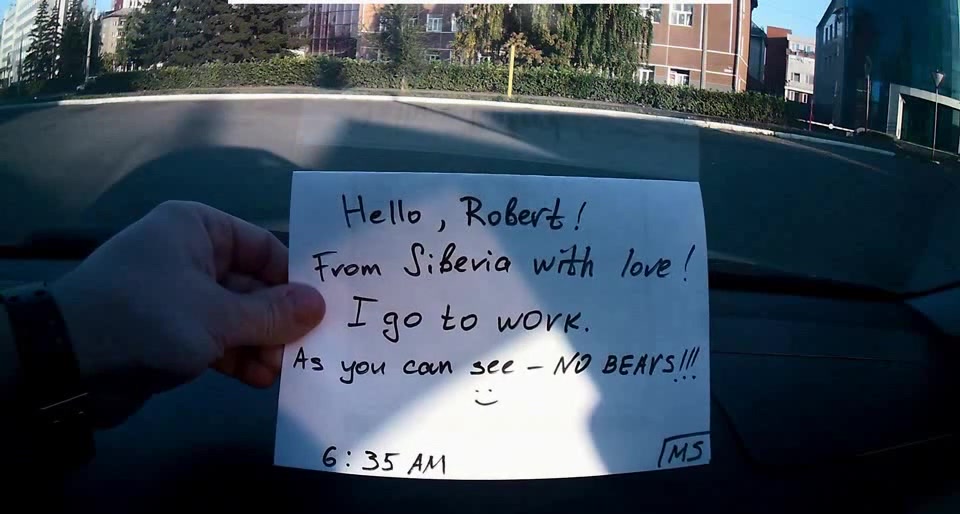 Hello, Robert!
From Siberia with love!
I go to work.
As you can see - NO BEARS!!!
:)
6:35 AM
MS